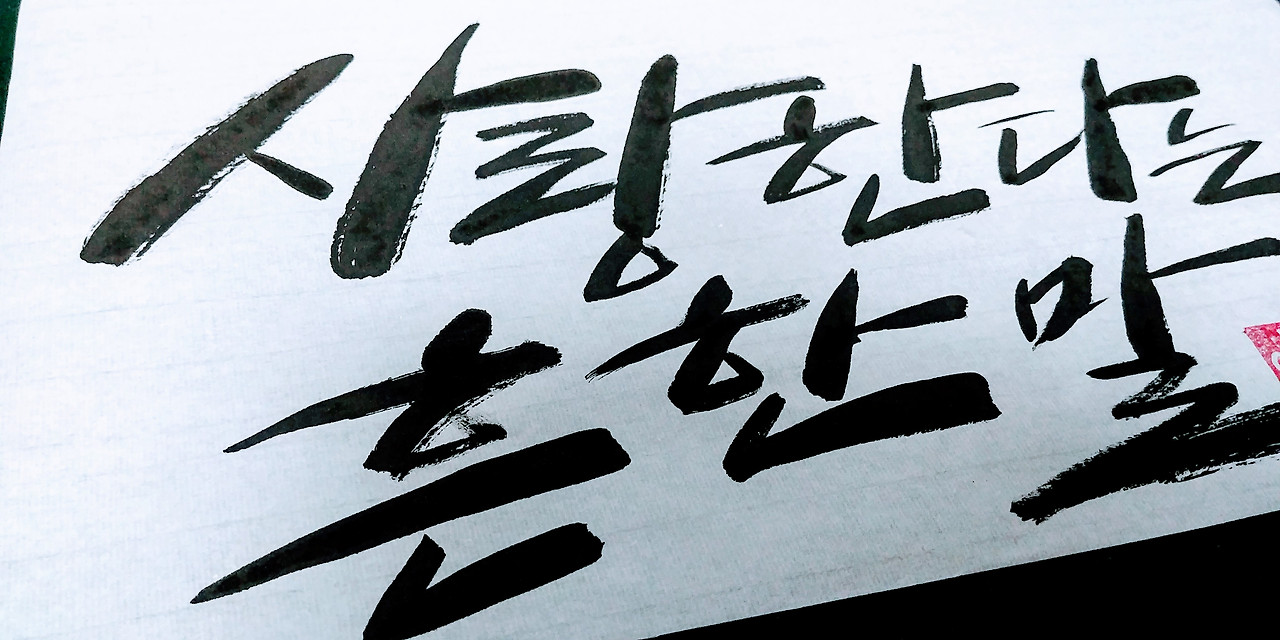 사랑한다는
흔한 말